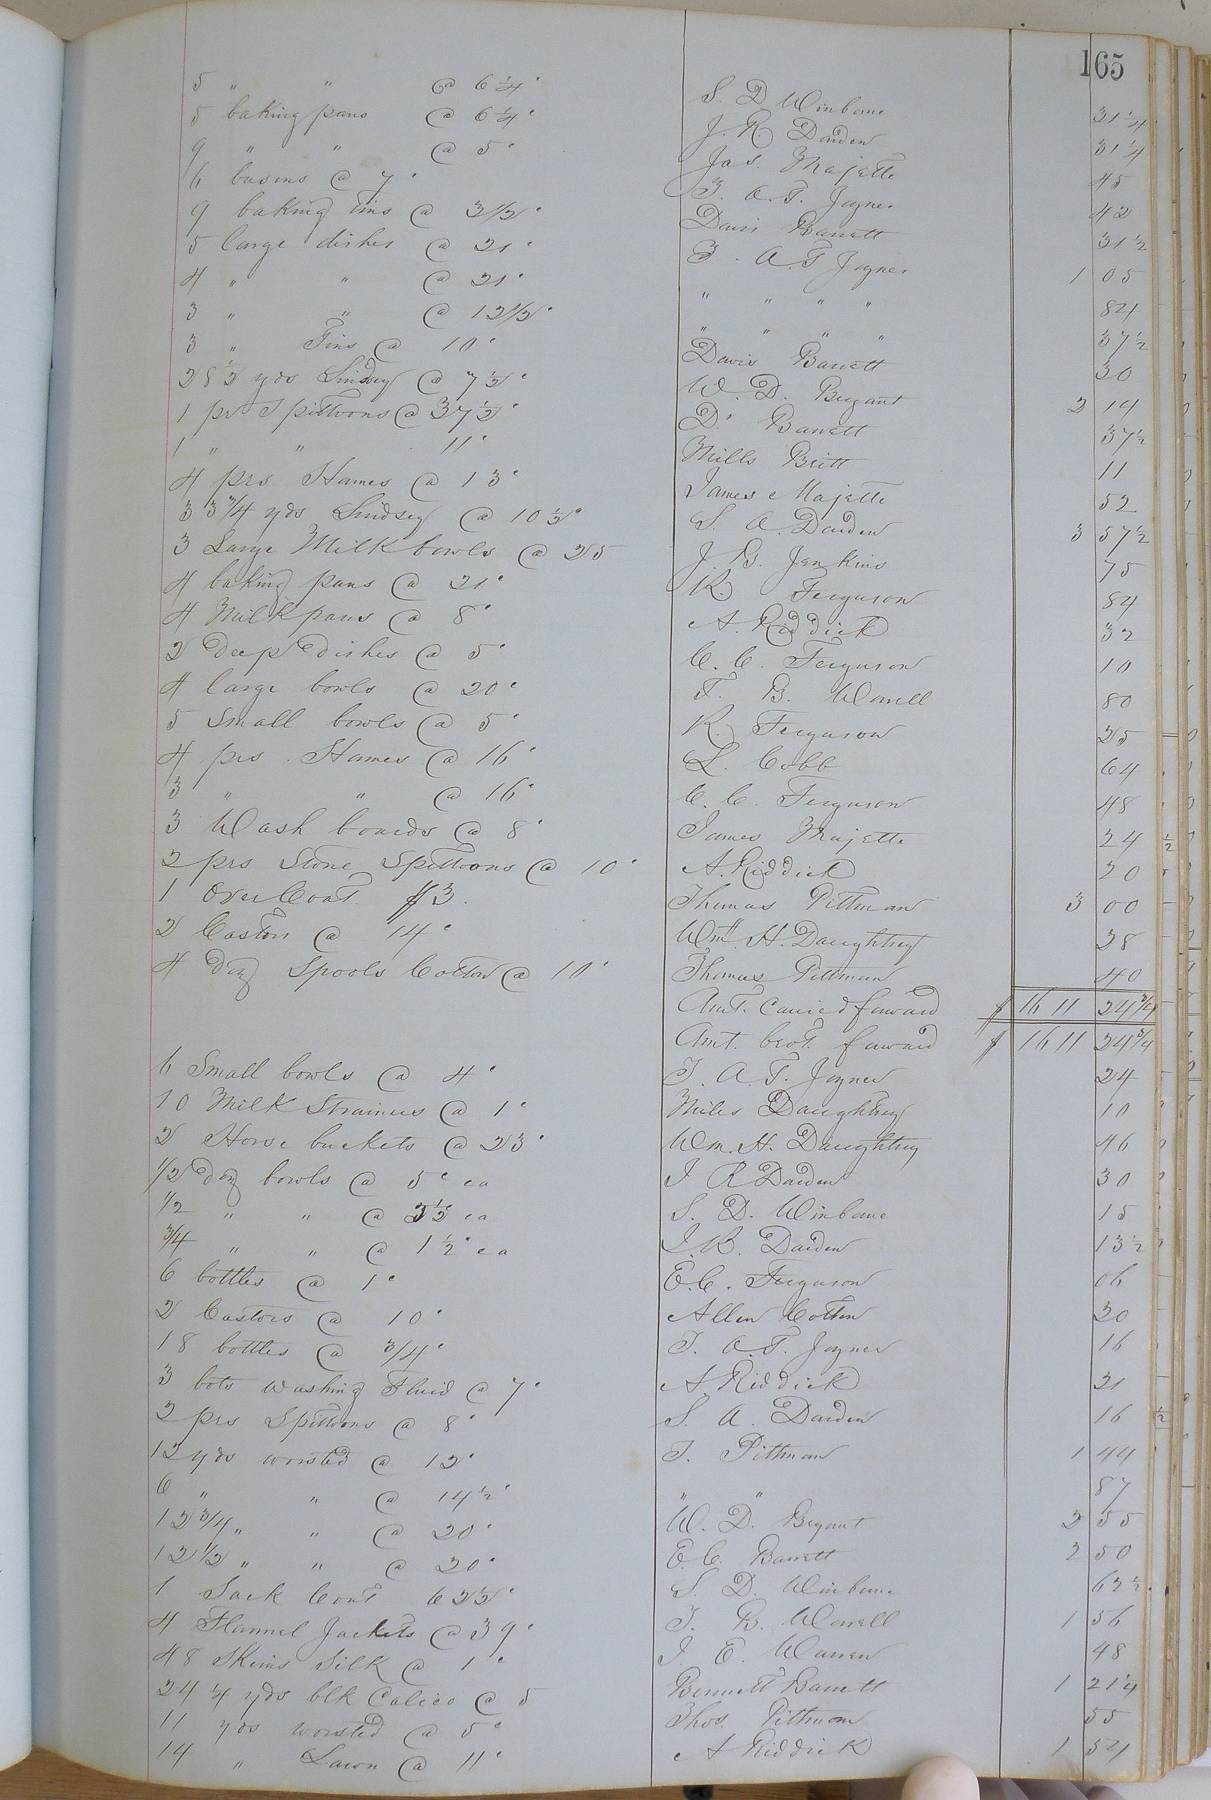 165
5 " " @ 6¼c S. D Winborne 31¼
5 baking pans @ 6¼c J. R. Darden 31¼
9 " " @ 5c Jas. Majette 45
6 basins @ 7c T. A. T. Joyner 42
9 baking tins @ 3½c Davis Barrett 31½
5 large dishes @ 21c T. A. T Joyner 1 05
4 " " @ 21c " " " " 84
3 " " @ 12½c " " " " 37½
3 " Tins @ 10c Davis Barrett 30
28½ yds Lindsey @ 7½c W. D. Bryant 2 14
1 pr Spittoons @ 37½c D. Barrett 37½
1 " " 11c Mills Britt 11
4 prs Hames @ 13c James Majette 52
33¾ yds Lindsey @ 10½c S. A. Darden 3 57½
3 Large Milk bowls @ 25 J. B. Jenkins 75
4 baking pans @ 21c R. Ferguson 84
4 Milk pans @ 8c A. Riddick 32
2 Deep Dishes @ 5c C. C. Ferguson 10
4 large bowls @ 20c T. B. Worrell 80
5 Small bowls @ 5c R. Ferguson 25
4 prs. Hames @ 16c L. Cobb 64
3 " " @ 16c C. C. Ferguson 48
3 Wash boards @ 8c James Majette 24
2 prs Stone Spittoons @ 10c A. Riddick 20
1 Over Coat $3. Thomas Pittman 3 00
2 Castors @ 14c Wm. H. Daughtrey 28
4 Doz Spools Cotton @ 10c Thomas Pittman 40
Amt. Carried forward $ 16 11 24¾
Amt. brot. forward $ 16 11 24¾
6 Small bowls @ 4c T. A. T. Joyner 24
10 Milk Strainers @ 1c Miles Daughtrey 10
2 Horse buckets @ 23c Wm. H. Daughtrey 46
1/2 Doz bowls @ 5c ea J R Darden 30
1/2 " " @ 2½ ea S. D. Winborne 15
3/4 " " @ 1½c ea J. B. Darden 13½
6 bottles @ 1c E. C. Ferguson 06
2 Castors @ 10c Allen Cotten 20
18 bottles @ 3/4c T. A. T. Joyner 16
3 bots washing Fluid @ 7c A Riddick 21
2 prs Spittoons @ 8c S. A. Darden 16
12 yds worsted @ 12c T. Pittman 1 44
6 " " @ 14½c " " 87
12¾ " " @ 20c W. D. Bryant 2 55
12½ " " @ 20c E. C. Barrett 2 50
1 Sack Coat 62½c S. D. Winborne 62½
4 Flannel Jackets @ 39c T. B. Worrell 1 56
48 Skeins Silk @ 1c J. E. Warren 48
24¼ yds blk Calico @ 5 Bennett Barrett 1 21¼
11 yds worsted @ 5c Thos. Pittman 55
14 " Lawn @ 11c A Riddick 1 54